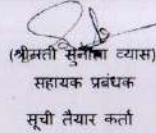 (श्रीमती सुनीता व्यास)
सहायक प्रबंधक
सूची तैयार कर्ता